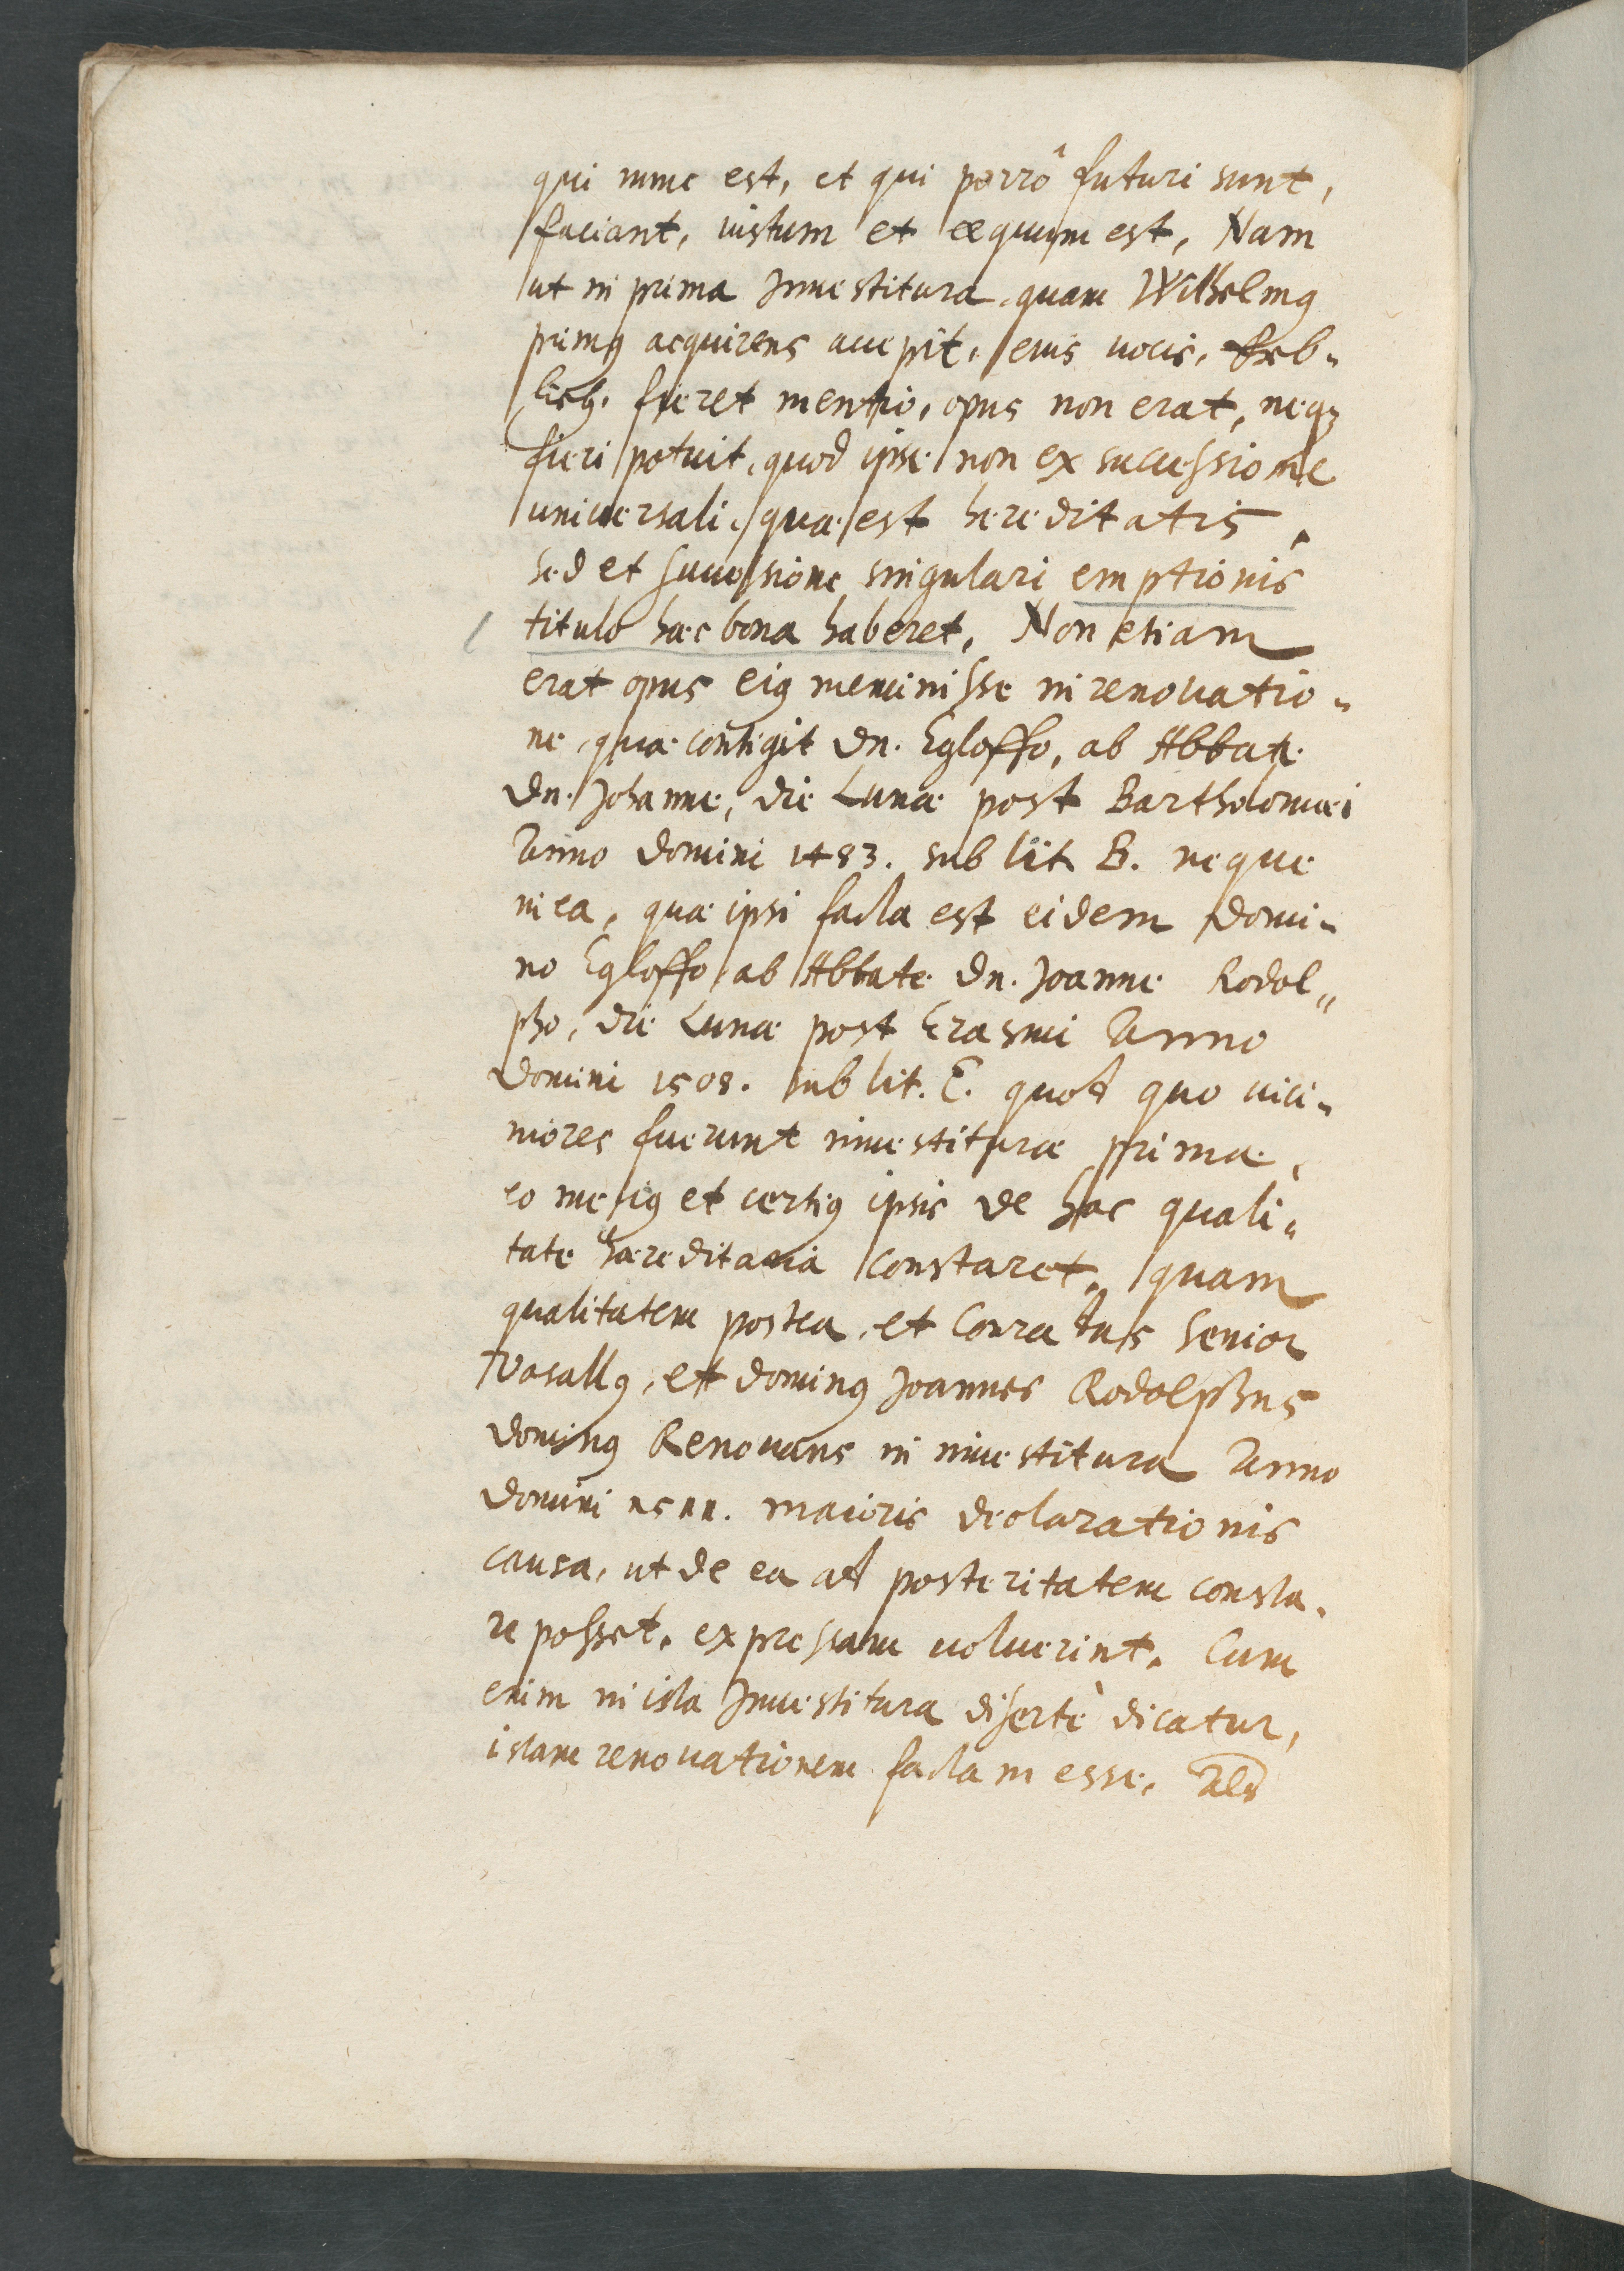 qui nunc est, et qui porrô futuri sunt,
faciant, iustum et æquum est, Nam
ut in prima Inuestitura, quam Wilhelmꝰ
primꝰ acquirens accepit, eius uocis, Erb-
lich, fieret mentio, opus non erat, neqꝫ
fieri potuit, quod ipse non ex successione
uniuersali, quæ est hereditatis,
sed et successione singulari emptionis
titulo hæc bona haberet, Non etiam
erat opus eiꝰ meminisse in renouatio-
ne, quæ contigit Dn. Egloffo, ab Abbate
Dn. Johanne, die Lunæ post Bartholomæi
Anno Domini 1483. sub lit. B. neque
in ea, quæ ipsi facta est eidem Domi-
no Egloffo ab Abbate Dn. Joanne Rodol-
pho, die Lunæ post Erasmi Anno
Domini 1508. sub lit. C. quod quo uici-
niores fuerunt inuestituræ primæ,
eo meliꝰ et certiꝰ ipsis de hac quali-
tate hæreditaria constaret, quam
qualitatem postea, et Conradus Senior
Vasallꝰ, et dominꝰ Joannes Rodolphus
dominꝰ Renouans in inuestitura Anno
Domini 1511. maioris declarationis
causa, ut de ea ad posteritatem consta-
re posset, expressam uoluerint. Cum
enim in ista Inuestitura disertè dicatur,
istam renouationem factam esse, Als